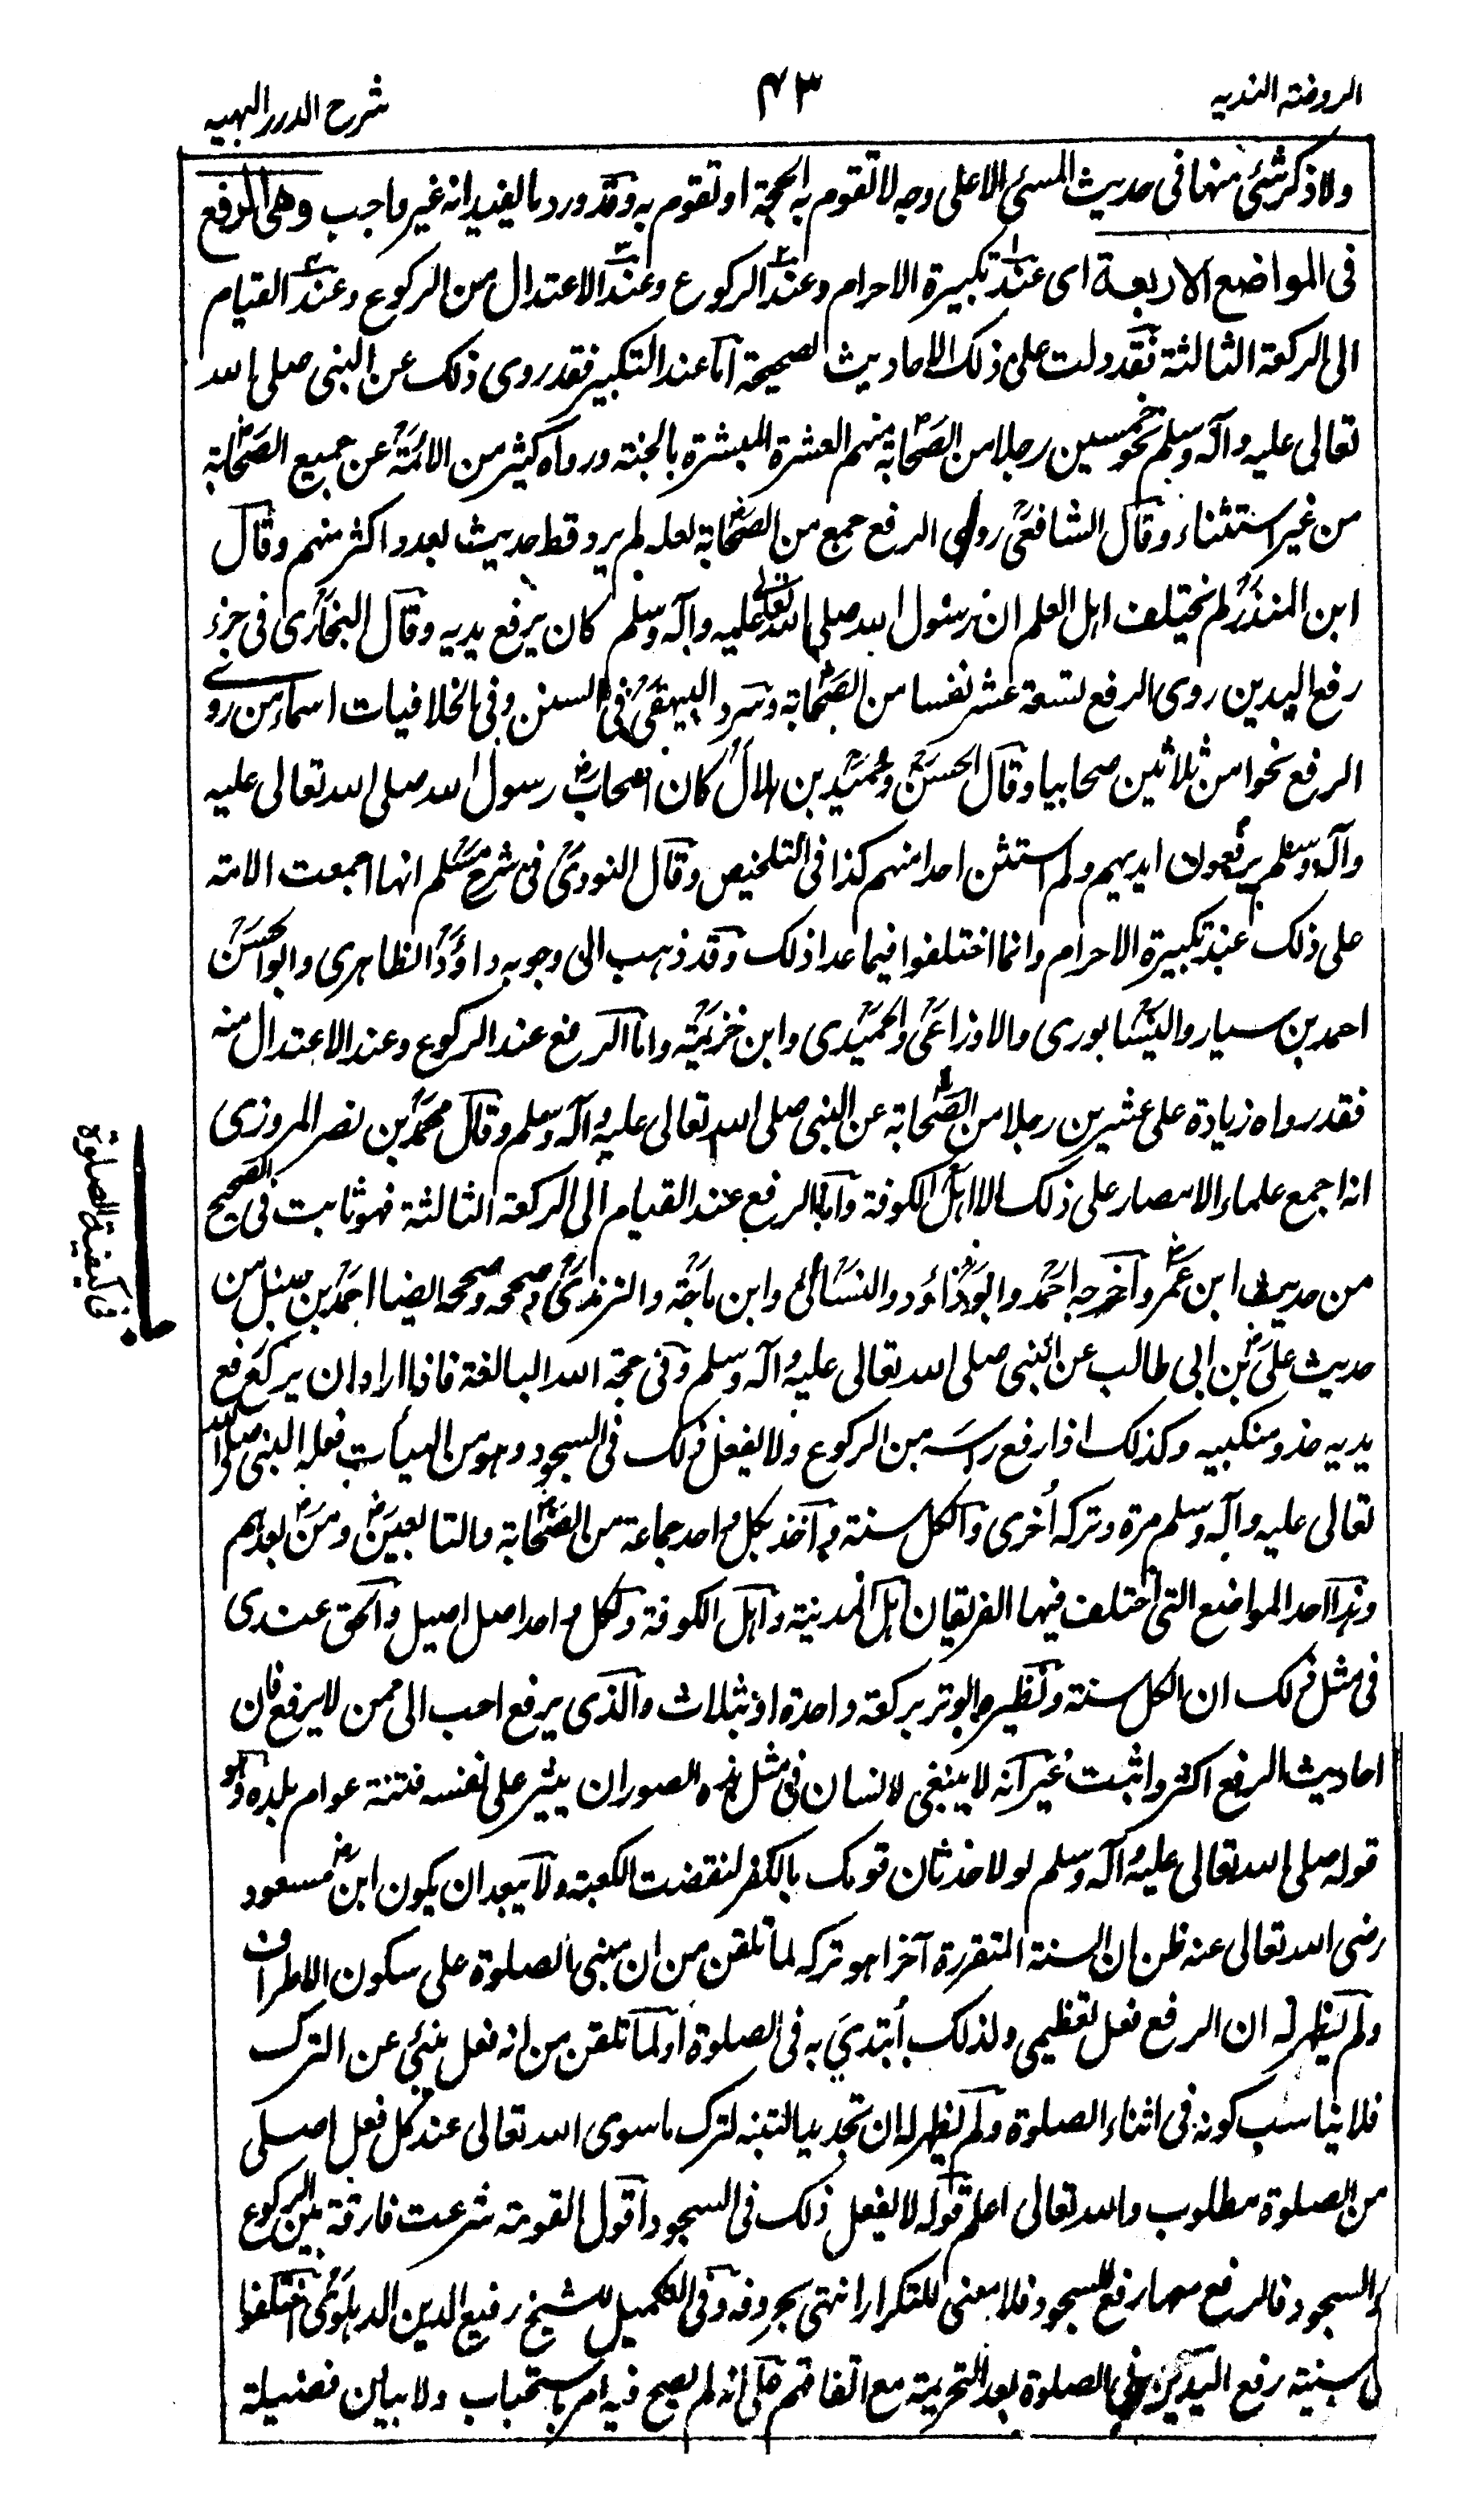 الروضة الندية
٤٣
شرح الدرر البهية
ولا ذكر شئ منها فى حديث المسئ الا على وجه لا تقوم به الحجة او تقوم به وقد ورد ما يفيد انه غير واجب وهى الرفع
فى المواضع الاربعة اى عند تكبيرة الاحرام وعند الركوع وعند الاعتدال من الركوع وعند القيام
الى الركعة الثالثة فقد دلت على ذلك الاحاديث الصحيحة اما عند التكبير فقد روى ذلك عن النبى صلى الله
تعالى عليه وآله وسلم نحو خمسين رجلا من الصحابة منهم العشرة المبشرة بالجنة ورواه كثير من الائمة عن جميع الصحابة
من غير استثناء وقال الشافعى روى الرفع جمع من الصحابة لعله لم يرد قط حديث بعدد اكثر منهم وقال
ابن المنذر لم يختلف اهل العلم ان رسول الله صلى الله تعالى عليه وآله وسلم كان يرفع يديه وقال البخارى فى جزء
رفع اليدين روى الرفع تسعة عشر نفسا من الصحابة وسرد البيهقى فى السنن وفى الخلافيات اسماء من روے
الرفع نحوا من ثلاثين صحابيا وقال الحسن وحميد بن هلال كان اصحاب رسول الله صلى الله تعالى عليه
وآله وسلم يرفعون ايديهم ولم يستثن احدا منهم كذا فى التلخيص وقال النووى فى شرح مسلم انها اجمعت الامة
على ذلك عند تكبيرة الاحرام وانما اختلفوا فيما عدا ذلك وقد ذهب الى وجوبه داؤد الظاهرى وابو الحسن
احمد بن سيار والنيسابورى والاوزاعى والحميدى وابن خزيمة واما الرفع عند الركوع وعند الاعتدال منه
فقد رواه زيادة على عشرين رجلا من الصحابة عن النبى صلى الله تعالى عليه وآله وسلم وقال محمد بن نصر المروزى
انه اجمع علماء الامصار على ذلك الا اهل الكوفة واما الرفع عند القيام الى الركعة الثالثة فهو ثابت فى الصحيح
من حديث ابن عمر واخرجه احمد وابو داؤد والنسائى وابن ماجة والترمذى وصححه وصححه ايضا احمد بن حنبل من
حديث على بن ابى طالب عن النبى صلى الله تعالى عليه وآله وسلم وفى حجة الله البالغة فاذا اراد ان يركع رفع
يديه حذو منكبيه وكذلك اذا رفع راسه من الركوع ولا يفعل ذلك فى السجود وهو من الهيأت فعله النبى صلى الله
تعالى عليه وآله وسلم مرة وتركه أخرى والكل سنة واخذ بكل واحد جماعة من الصحابة والتابعين ومن بعدهم
وهذا احد المواضع التى اختلف فيها الفريقان اهل المدينة واهل الكوفة ولكل واحد اصل اصيل والحق عندى
فى مثل ذلك ان الكل سنة ونظيره الوتر بركعة واحدة او بثلاث والذى يرفع احب الى ممن لا يرفع فان
احاديث الرفع اكثر واثبت غير انه لا ينبغى لانسان فى مثل هذه الصور ان يثير على نفسه فتنة عوام بلده وهو
قوله صلى الله تعالى عليه وآله وسلم لولا حدثان قومك بالكفر لنقضت الكعبة ولا يبعد ان يكون ابن مسعود
رضى الله تعالى عنه ظن ان السنة المتقررة آخرا هو تركه لما تلقن من ان مبنى الصلوة على سكون الاطراف
ولم يظهر له ان الرفع فعل تعظيمى ولذلك أبتدئ به فى الصلوة او لما تلقن من انه فعل ينبئ عن الترك
فلا يناسب كونه فى اثناء الصلوة ولم يظهر له ان تجديد التنبه لترك ما سوى الله تعالى عند كل فعل اصلى
من الصلوة مطلوب والله تعالى اعلم قوله لا يفعل ذلك فى السجود اقول القومة شرعت فارقة بين الركوع
والسجود فالرفع معها رفع للسجود فلا معنى للتكرار انتهى بحروفه وفى التكميل للشيخ رفيع الدين الدهلوى اختلفوا
فى سنية رفع اليدين فى الصلوة بعد التحريمة مع اتفاقهم على انه لم يصح فيه امر باستحباب ولا بيان فضيلة
ف كيفية الصلوة